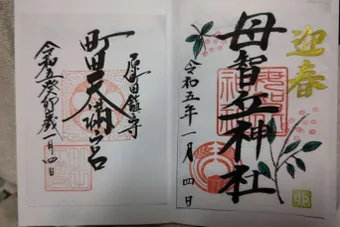 迎春
母智丘神社
令和五年一月四日
鎮守
町田天満宮
令和五癸卯歳一月四日